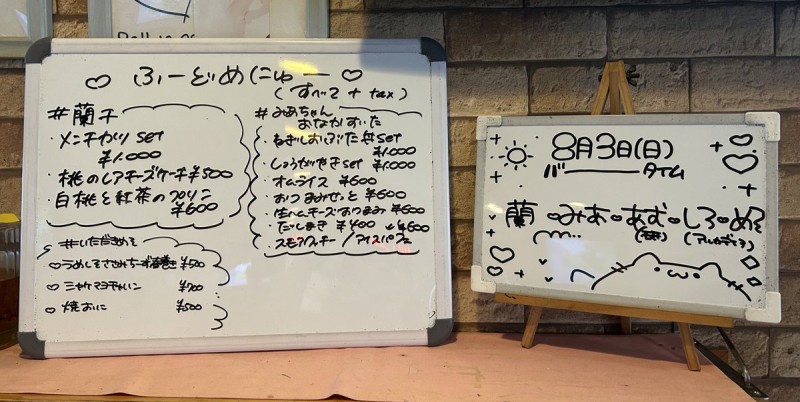 ♡ ふーどめにゅー ♡
(すべて + tax)
#蘭千
メンチカツ set
¥1.000
・桃のレアチーズケーキ ¥500
・白桃と紅茶のプリン
¥600
#みあちゃん
おなかすいた
・ねぎしおぶた丼set
¥1.000
・しょうがやきset ¥1.000
・オムライス ¥600
・おつまみせっと ¥600
・生ハムチーズおつまみ ¥600
・だしまき ¥400
・スモアクッキー / アイスパフェ ¥600
#いただきめろ
♡うめしそささみちーず春巻き ¥500
♡ ¥700
♡ 焼おに ¥500
8月3日(日)
バータイム
蘭・みあ・あむ・しろ・める